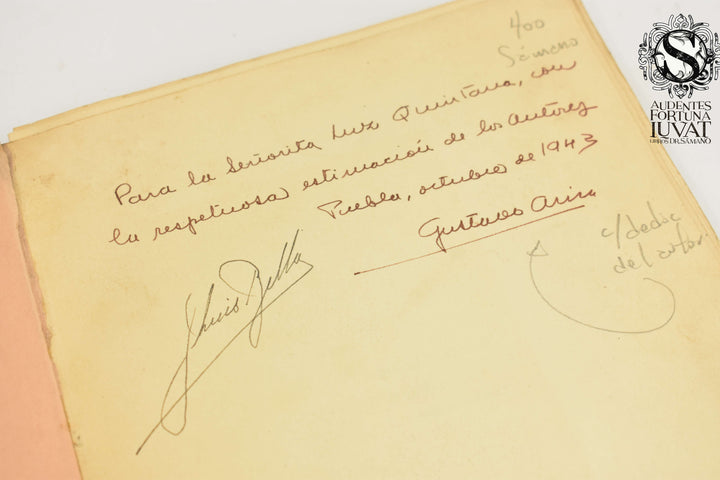 400
Sámano
Para la Señorita Luz Quintana, con
la respetuosa estimación de los autores
Puebla, octubre de 1943
Gustavo Ariza
Luis Bello
c/dedic
del autor
S
AUDENTES
FORTUNA
IUVAT
LIBROS DR. SÁMANO